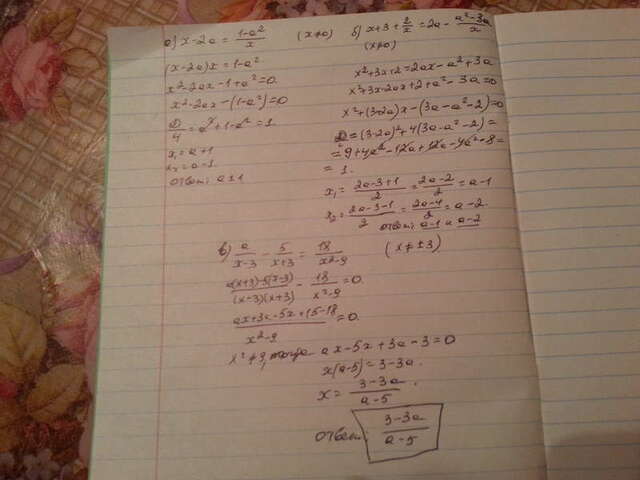 а) x-2a = \frac{1-a^2}{x} (x≠0)
(x-2a)x = 1-a^2
x^2-2ax-1+a^2=0.
x^2-2ax-(1-a^2)=0
\frac{D}{4} = a^2+1-a^2=1.
x_1=a+1
x_2=a-1
Ответ: a±1
б) x+3+\frac{2}{x} = 2a-\frac{a^2-3a}{x}
(x≠0)
x^2+3x+2=2ax-a^2+3a
x^2+3x-2ax+2+a^2-3a=0
x^2+(3-2a)x-(3a-a^2-2)=0
D=(3-2a)^2+4(3a-a^2-2)=
=9+4a^2-12a+12a-4a^2-8=
=1.
x_1=\frac{2a-3+1}{2}=\frac{2a-2}{2}=a-1
x_2=\frac{2a-3-1}{2}=\frac{2a-4}{2}=a-2
Ответ: a-1 и a-2
в) \frac{a}{x-3}-\frac{5}{x+3}=\frac{18}{x^2-9} (x≠±3)
\frac{a(x+3)-5(x-3)}{(x-3)(x+3)}-\frac{18}{x^2-9}=0
\frac{ax+3a-5x+15-18}{x^2-9}=0.
x^2≠9, тогда ax-5x+3a-3=0
x(a-5)=3-3a.
x=\frac{3-3a}{a-5}.
Ответ: \frac{3-3a}{a-5}